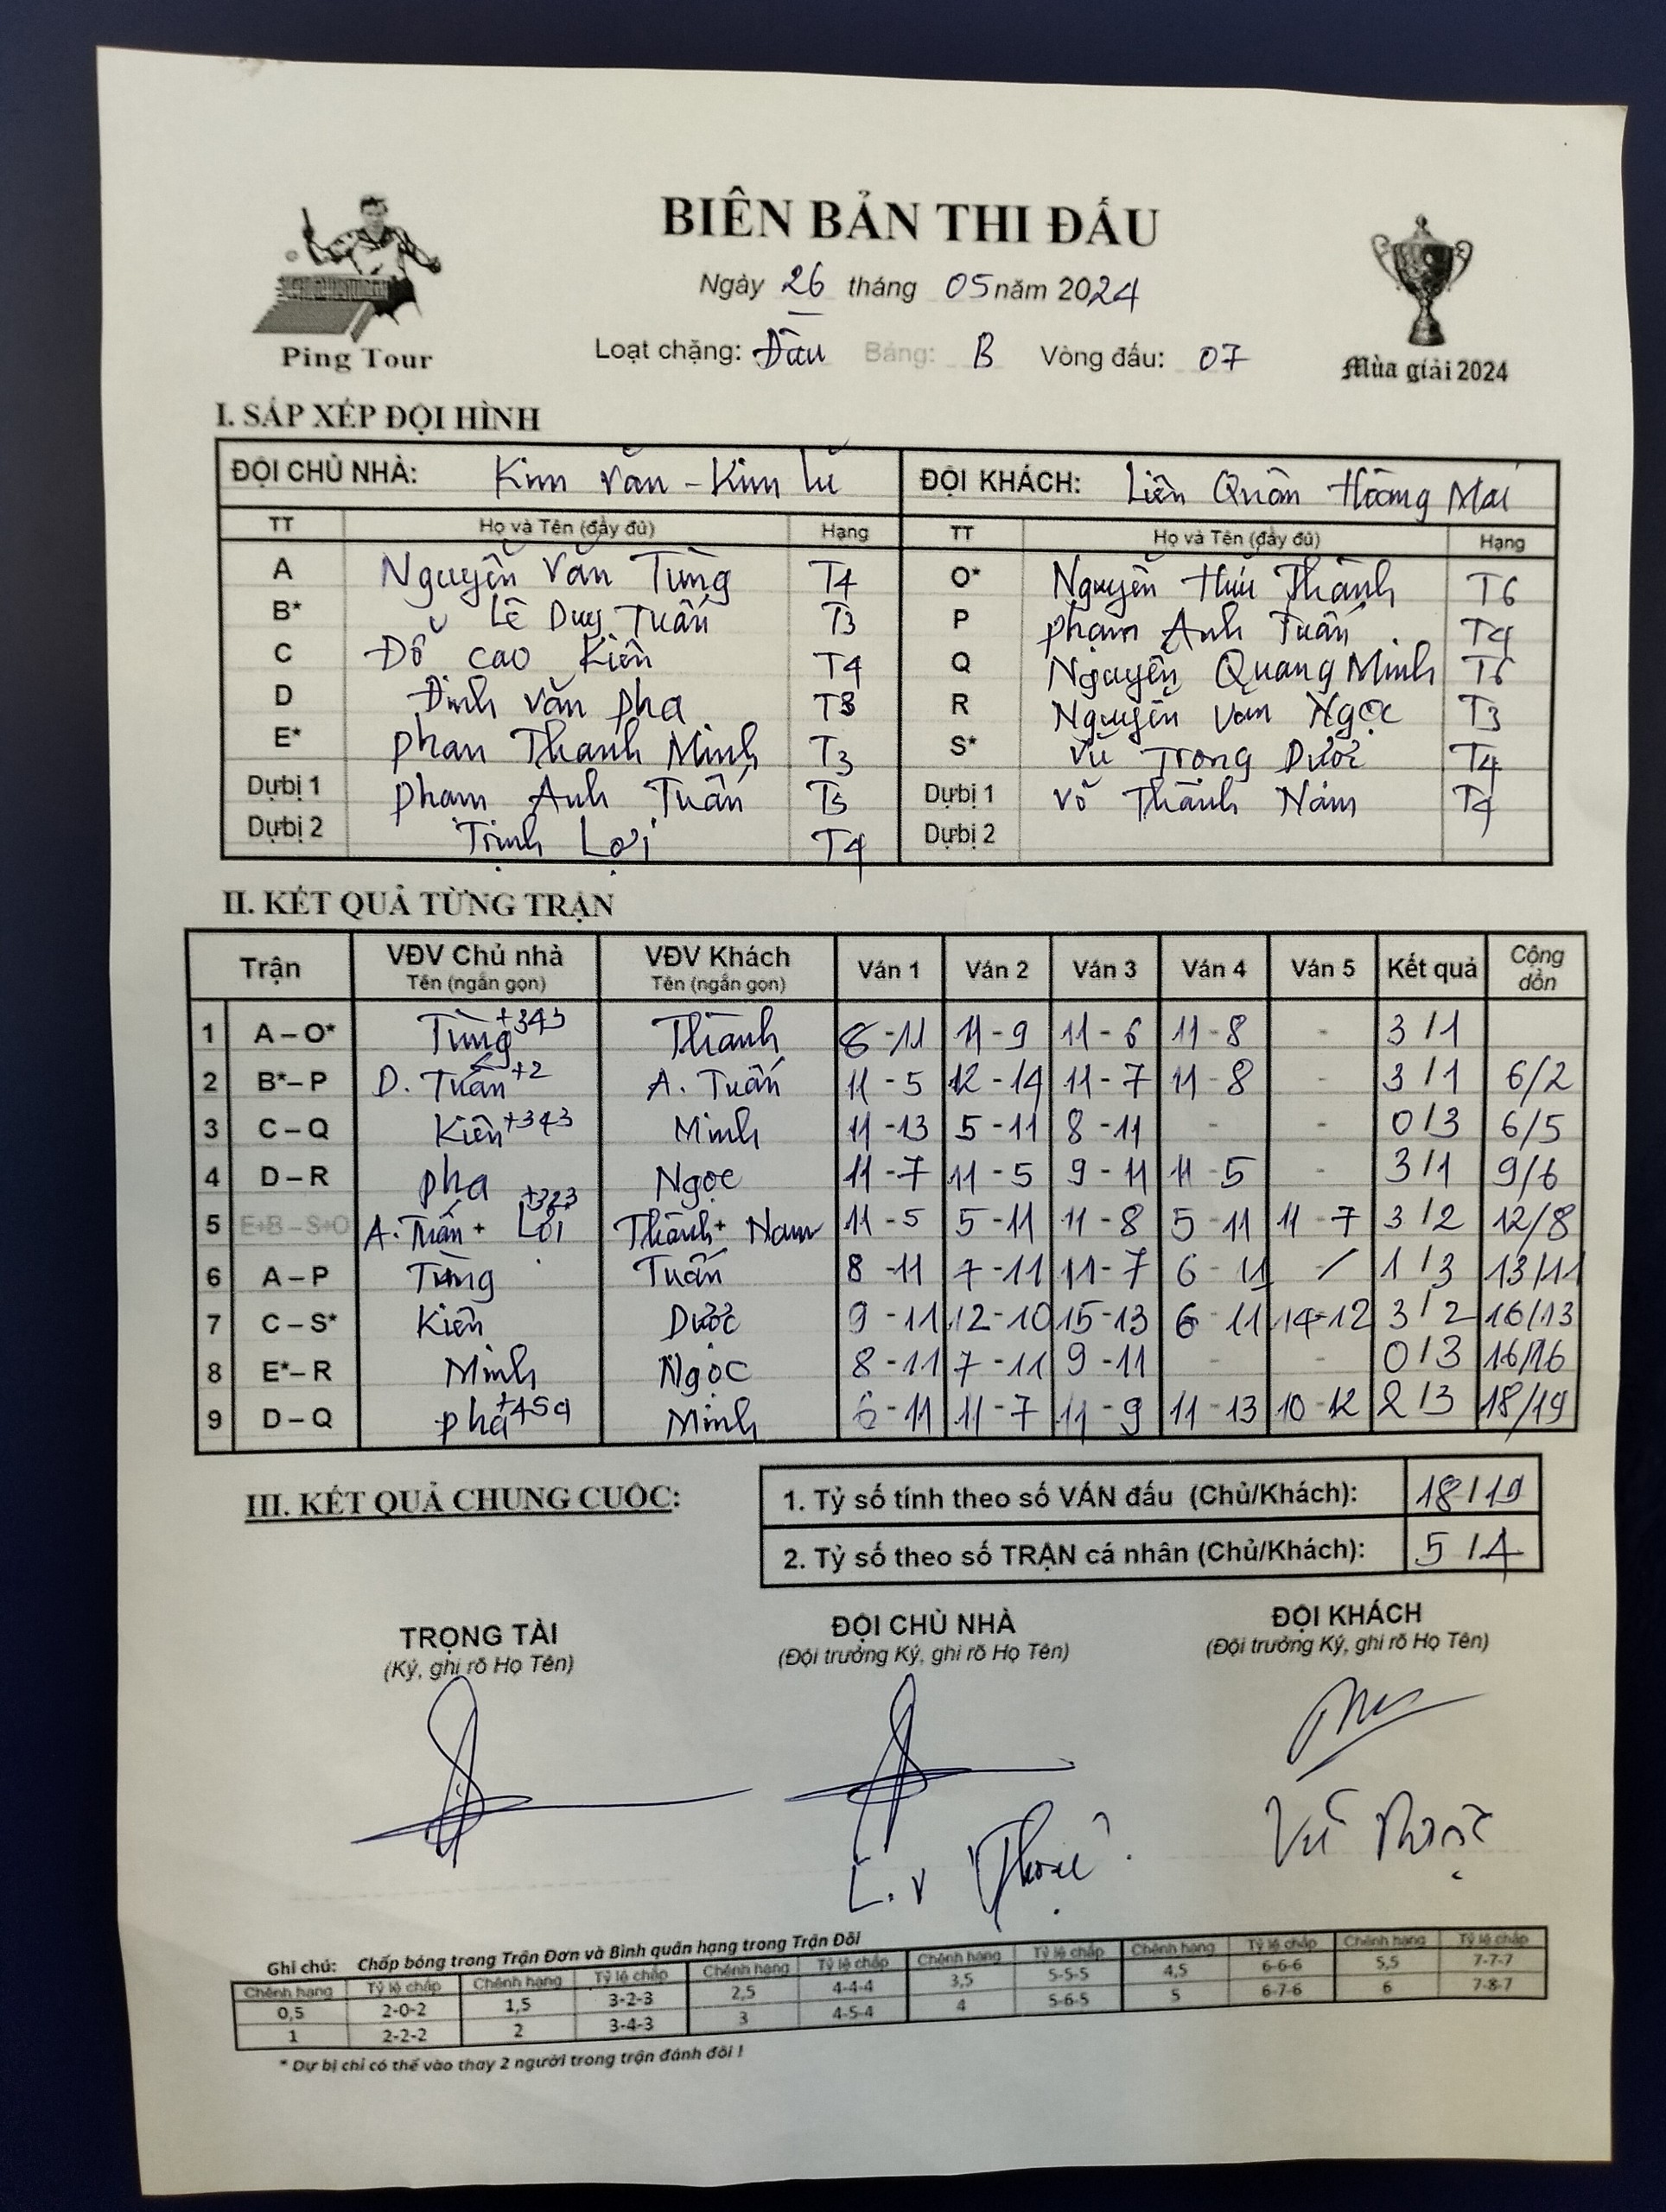 BIÊN BẢN THI ĐẤU
Ngày 26 tháng 05 năm 2024
Loạt chặng: Đầu Bảng: B Vòng đấu: 07
Ping Tour
Mùa giải 2024
I. SẮP XẾP ĐỘI HÌNH
ĐỘI CHỦ NHÀ: Kim Văn - Kim Lũ ĐỘI KHÁCH: Liên Quân Hoàng Mai
TT Họ và Tên (đầy đủ) Hạng TT Họ và Tên (đầy đủ) Hạng
A Nguyễn Văn Tùng T4 O* Nguyễn Hữu Thành T6
B* Lê Duy Tuấn T3 P Phạm Anh Tuấn T4
C Đỗ Cao Kiên T4 Q Nguyễn Quang Minh T6
D Đinh Văn Pha T3 R Nguyễn Van Ngọc T3
E* Phan Thanh Minh T3 S* Vũ Trọng Dược T4
Dự bị 1 Phạm Anh Tuấn T5 Dự bị 1 Võ Thành Nam T4
Dự bị 2 Trịnh Lợi T4 Dự bị 2
II. KẾT QUẢ TỪNG TRẬN
Trận VĐV Chủ nhà VĐV Khách Ván 1 Ván 2 Ván 3 Ván 4 Ván 5 Kết quả Cộng dồn
Tên (ngắn gọn) Tên (ngắn gọn)
1 A – O* Tùng +343 Thành 8 - 11 11 - 9 11 - 6 11 - 8 - 3 / 1
2 B* – P D. Tuấn +2 A. Tuấn 11 - 5 12 - 14 11 - 7 11 - 8 - 3 / 1 6/2
3 C – Q Kiên +343 Minh 11 - 13 5 - 11 8 - 11 - - 0 / 3 6/5
4 D – R Pha Ngọc 11 - 7 11 - 5 9 - 11 11 - 5 - 3 / 1 9/6
5 E+B – S+O A. Tuấn + Lợi +323 Thành + Nam 11 - 5 5 - 11 11 - 8 5 - 11 11 - 7 3 / 2 12/8
6 A – P Tùng Tuấn 8 - 11 7 - 11 11 - 7 6 - 11 / 1 / 3 13/11
7 C – S* Kiên Dược 9 - 11 12 - 10 15 - 13 6 - 11 14 - 12 3 / 2 16/13
8 E* – R Minh Ngọc 8 - 11 7 - 11 9 - 11 - - 0 / 3 16/16
9 D – Q Pha Minh 6 - 11 11 - 7 11 - 9 11 - 13 10 - 12 2 / 3 18/19
III. KẾT QUẢ CHUNG CUỘC:
1. Tỷ số tính theo số VÁN đấu (Chủ/Khách): 18 / 19
2. Tỷ số theo số TRẬN cá nhân (Chủ/Khách): 5 / 4
TRỌNG TÀI ĐỘI CHỦ NHÀ ĐỘI KHÁCH
(Ký, ghi rõ Họ Tên) (Đội trưởng Ký, ghi rõ Họ Tên) (Đội trưởng Ký, ghi rõ Họ Tên)
L. V
Vũ
Ghi chú: Chấp bóng trong Trận Đơn và Bình quân hạng trong Trận Đôi
Chênh hạng Tỷ lệ chấp Chênh hạng Tỷ lệ chấp Chênh hạng Tỷ lệ chấp Chênh hạng Tỷ lệ chấp Chênh hạng Tỷ lệ chấp Chênh hạng Tỷ lệ chấp
0,5 2-0-2 1,5 3-2-3 2,5 4-4-4 3,5 5-5-5 4,5 6-6-6 5,5 7-7-7
1 2-2-2 2 3-4-3 3 4-5-4 4 5-6-5 5 6-7-6 6 7-8-7
* Dự bị chỉ có thể vào thay 2 người trong trận đánh đôi !